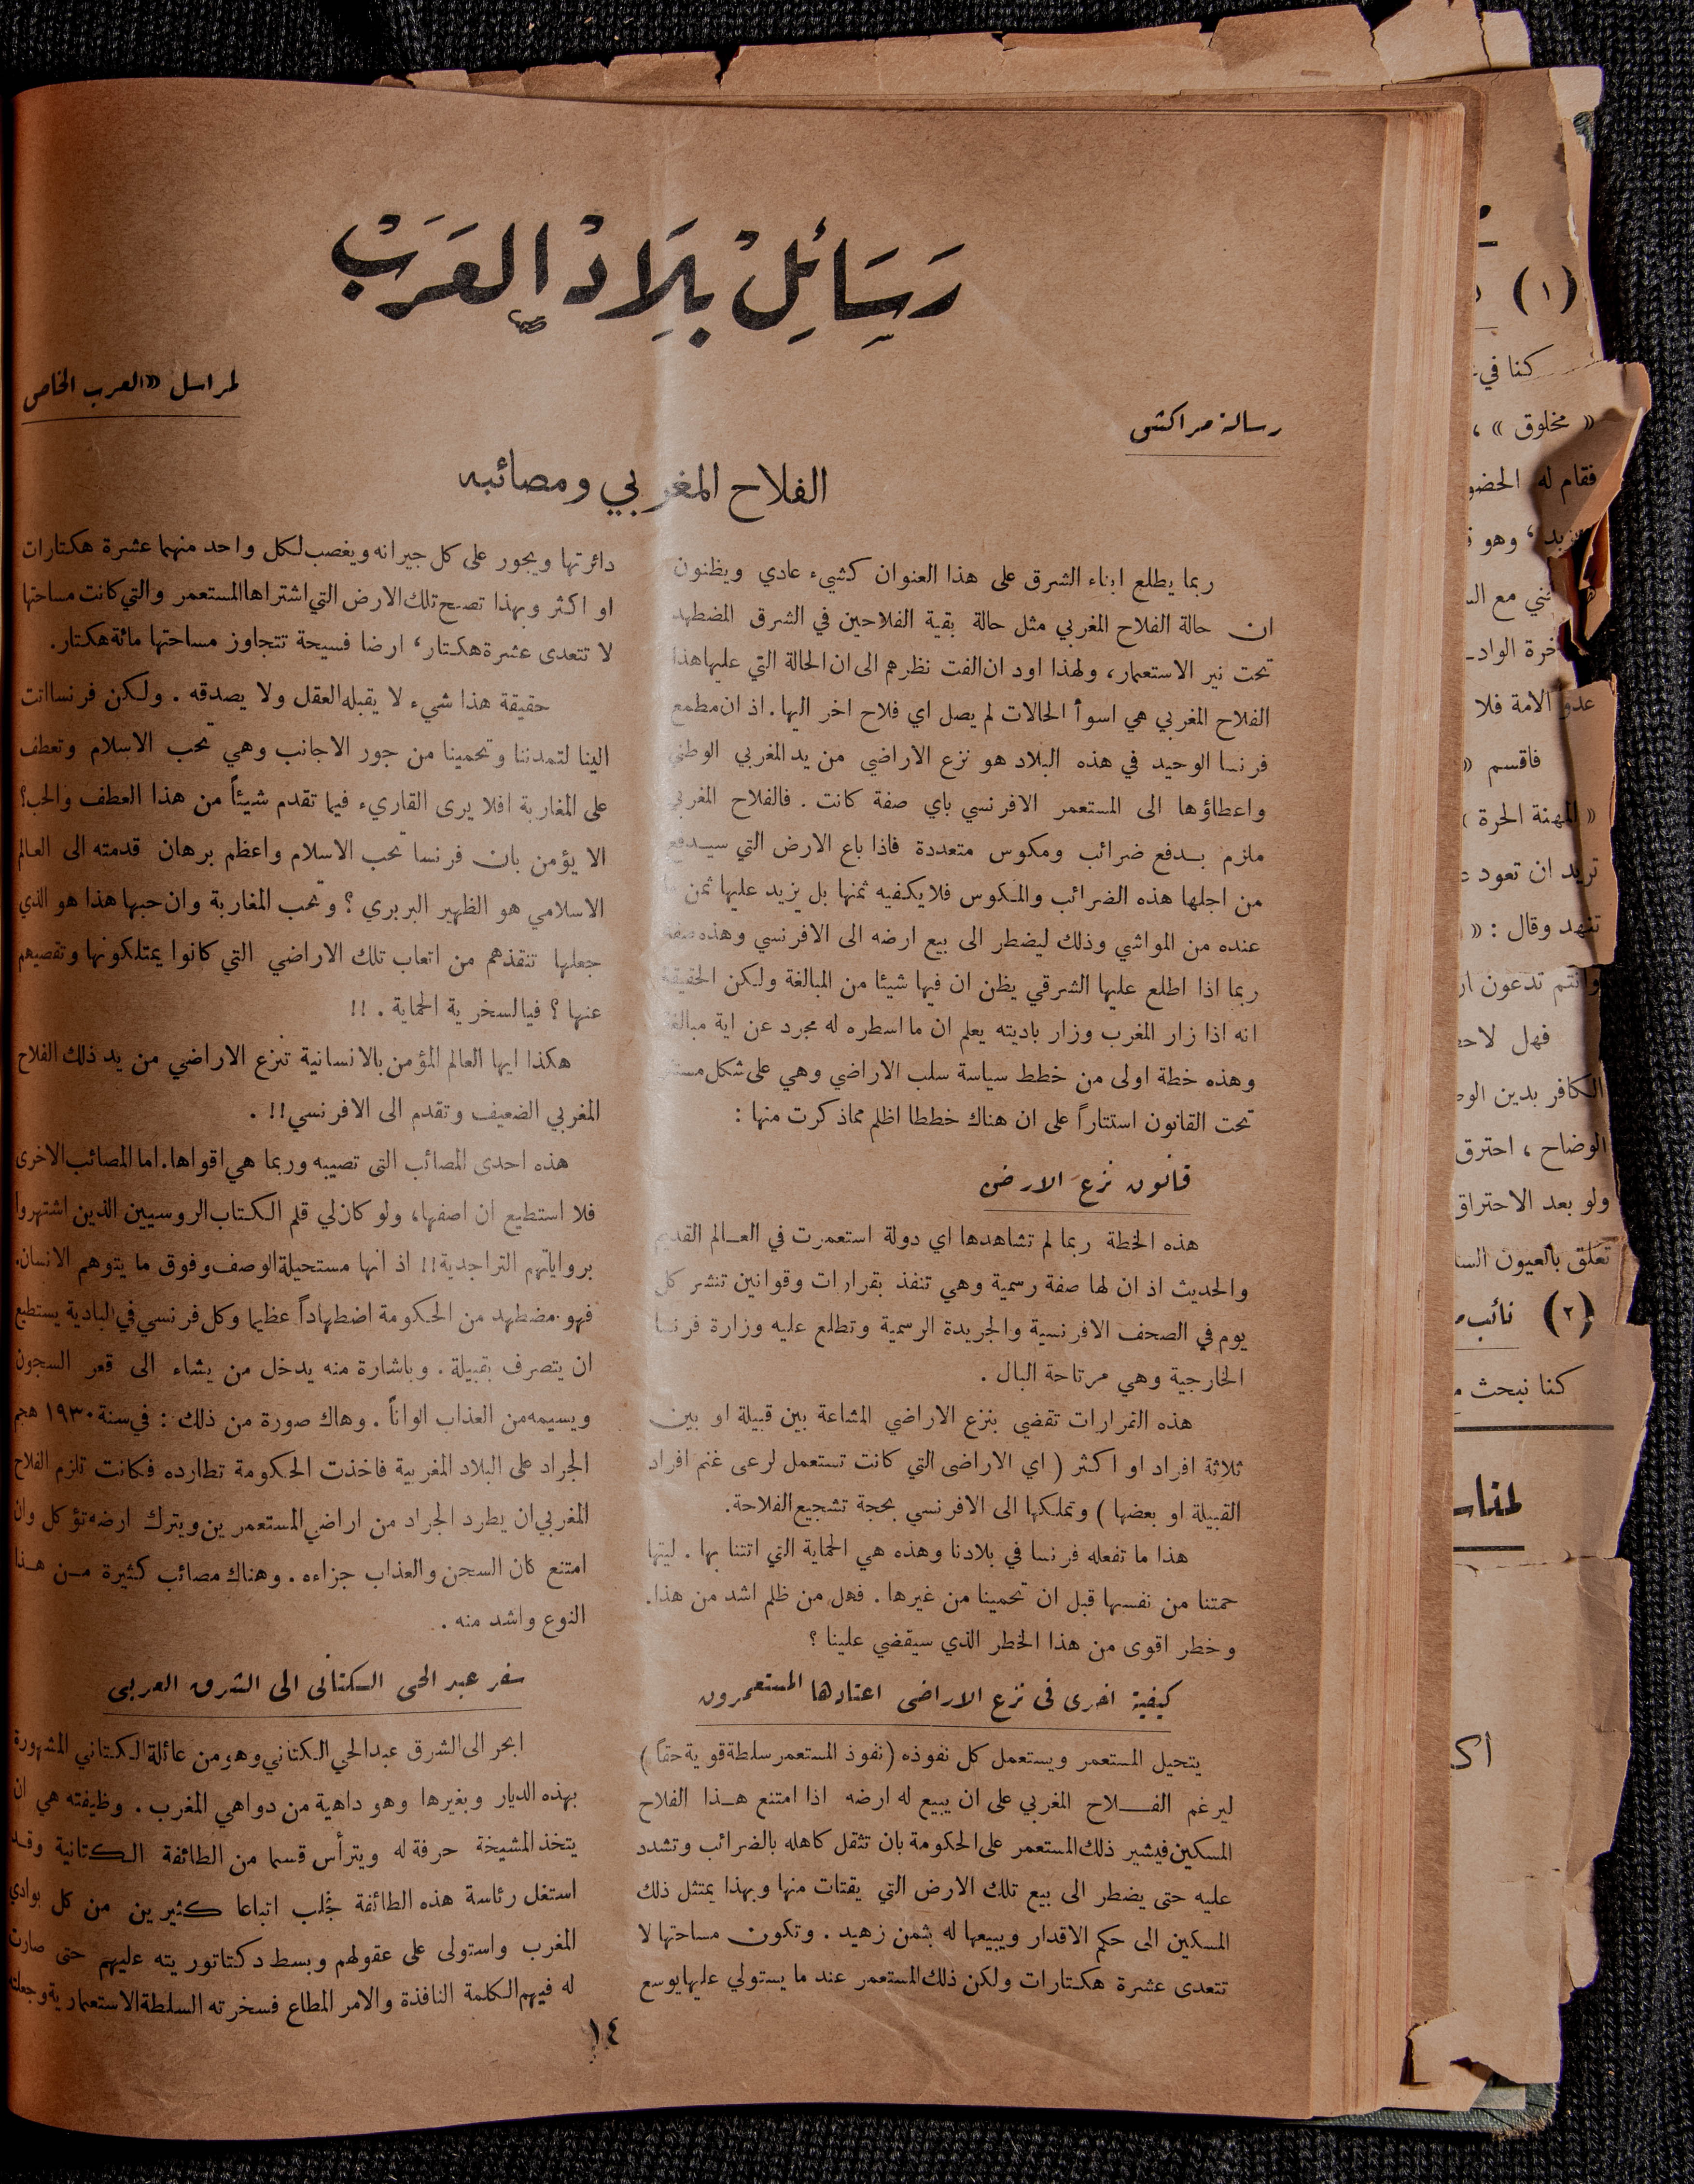 رَسَائِلْ بِلَادْ العَرَبْ
رسالة مراكش
لمراسل «العرب الخاص
الفلاح المغربي ومصائبه
ربما يطلع ابناء الشرق على هذا العنوان كشيء عادي ويظنون
ان حالة الفلاح المغربي مثل حالة بقية الفلاحين في الشرق المضطهد
تحت نير الاستعمار، ولهذا اود ان الفت نظرهم الى ان الحالة التي عليها هذا
الفلاح المغربي هي اسوأ الحالات لم يصل اي فلاح اخر اليها. اذ ان مطمع
فرنسا الوحيد في هذه البلاد هو نزع الاراضي من يد المغربي الوطني
واعطاؤها الى المستعمر الافرنسي باي صفة كانت. فالفلاح المغربي
ملزم بدفع ضرائب ومكوس متعددة فاذا باع الارض التي سيدفع
من اجلها هذه الضرائب والمكوس فلا يكفيه ثمنها بل يزيد عليها ثمن ما
عنده من المواشي وذلك ليضطر الى بيع ارضه الى الافرنسي وهذه صفة
ربما اذا اطلع عليها الشرقي يظن ان فيها شيئا من المبالغة ولكن الحقيقة
انه اذا زار المغرب وزار باديته يعلم ان ما اسطره له مجرد عن اية مبالغة
وهذه خطة اولى من خطط سياسة سلب الاراضي وهي على شكل
تحت القانون استتاراً على ان هناك خططا اظلم مما ذكرت منها :
قانون نزع الارض
هذه الخطة ربما لم تشاهدها اي دولة استعمرت في العالم القديم
والحديث اذ ان لها صفة رسمية وهي تنفذ بقرارات وقوانين تنشر كل
يوم في الصحف الافرنسية والجريدة الرسمية وتطلع عليه وزارة فرنسا
الخارجية وهي مرتاحة البال .
هذه القرارات تقضي بنزع الاراضي المشاعة بين قبيلة او بين
ثلاثة افراد او اكثر ( اي الاراضي التي كانت تستعمل لرعى غنم افراد
القبيلة او بعضها ) وتملكها الى الافرنسي بحجة تشجيع الفلاحة.
هذا ما تفعله فرنسا في بلادنا وهذه هي الحماية التي اتتنا بها . ليتها
حمتنا من نفسها قبل ان تحمينا من غيرها . فهل من ظلم اشد من هذا.
وخطر اقوى من هذا الخطر الذي سيقضي علينا ؟
كيفية اخرى في نزع الاراضى اعتادها المستعمرون
يتحيل المستعمر ويستعمل كل نفوذه (نفوذ المستعمر سلطة قوية حقاً )
ليرغم الفلاح المغربي على ان يبيع له ارضه اذا امتنع هذا الفلاح
المسكين فيشير ذلك المستعمر على الحكومة بان تثقل كاهله بالضرائب وتشدد
عليه حتى يضطر الى بيع تلك الارض التي يقتات منها وبهذا يمتثل ذلك
المسكين الى حكم الاقدار ويبيعها له بثمن زهيد . وتكون مساحتها لا
تتعدى عشرة هكتارات ولكن ذلك المستعمر عند ما يستولي عليها يوسع
دائرتها ويجور على كل جيرانه ويغصب لكل واحد منهما عشرة هكتارات
او اكثر وبهذا تصبح تلك الارض التي اشتراها المستعمر والتي كانت مساحتها
لا تتعدى عشرة هكتار، ارضا فسيحة تتجاوز مساحتها مائة هكتار.
حقيقة هذا شيء لا يقبله العقل ولا يصدقه . ولكن فرنسا اتت
الينا لتمدننا وتحمينا من جور الاجانب وهي تحب الاسلام وتعطف
على المغاربة افلا يرى القاريء فيما تقدم شيئاً من هذا العطف والحب؟
الا يؤمن بان فرنسا تحب الاسلام واعظم برهان قدمته الى العالم
الاسلامي هو الظهير البربري ؟ وتحب المغاربة وان حبها هذا هو الذي
جعلها تنقذهم من اتعاب تلك الاراضي التي كانوا يمتلكونها وتقصيهم
عنها ؟ فيا لسخرية الحماية . !!
هكذا ايها العالم المؤمن بالانسانية تنزع الاراضي من يد ذلك الفلاح
المغربي الضعيف وتقدم الى الافرنسي !! .
هذه احدى المصائب التى تصيبه وربما هي اقواها. اما المصائب الاخرى
فلا استطيع ان اصفها، ولو كان لي قلم الكتاب الروسيين الذين اشتهروا
برواياتهم التراجدية !! اذ انها مستحيلة الوصف وفوق ما يتوهم الانسان.
فهو مضطهد من الحكومة اضطهاداً عظيما وكل فرنسي في البادية يستطيع
ان يتصرف بقبيلة . وباشارة منه يدخل من يشاء الى قعر السجون
ويسيمه من العذاب الواناً . وهاك صورة من ذلك : في سنة ١٩٣٠ هجم
الجراد على البلاد المغربية فاخذت الحكومة تطارده فكانت تلزم الفلاح
المغربي ان يطرد الجراد من اراضي المستعمرين ويترك ارضه تؤكل وان
امتنع كان السجن والعذاب جزاءه . وهناك مصائب كثيرة من هذا
النوع واشد منه .
سفر عبد الحى الكتانى الى الشرق العربى
ابحر الى الشرق عبد الحي الكتاني وهو من عائلة الكتاني المشهورة
بهذه الديار وبغيرها وهو داهية من دواهي المغرب . وظيفته هي ان
يتخذ المشيخة حرفة له ويترأس قسما من الطائفة الكتانية وقد
استغل رئاسة هذه الطائفة فجلب اتباعا كثيرين من كل بوادي
المغرب واستولى على عقولهم وبسط دكتاتوريته عليهم حتى صارت
له فيهم الكلمة النافذة والامر المطاع فسخرته السلطة الاستعمارية وجعلته
١٤
(١)
كنا في
« مخلوق » ،
فقام له الحضو
وهو
ثني مع
خرة
عدو الامة فلا
فاقسم «
« المهنة الحرة
تريد ان تعود
تنهد وقال : «
وانتم تدعون
فهل
الكافر بدين
الوضاح ، احترق
ولو بعد الاحتراق
تعلق بالعيون
(٢) نائب
كنا نبحث